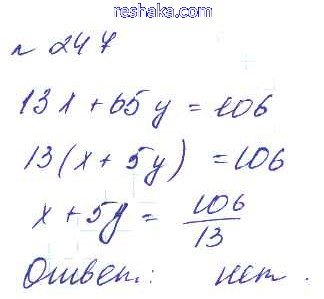 www.
reshaka.com
n 247
13x + 65y = 106
13(x + 5y) = 106
x + 5y = 106/13
Ответ: нет.